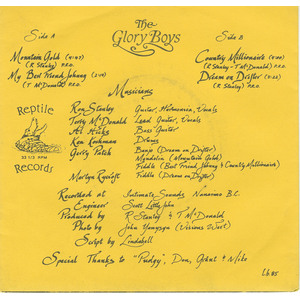 The
Glory Boys
Side A
Side B
Mountain Gold
(R Stanley) P.R.O.
My Best Friend Johnny
(T McDonald) P.R.O.
Country Millionaire
(R Stanley & T McDonald) P.R.O.
Dream on Drifter
(R Stanley) P.R.O.
Musicians
Ron Stanley Guitar, Harmonica, Vocals
Terry McDonald Lead Guitar, Vocals
Al Hicks Bass Guitar
Ken Lockman Drums
Gerry Patch Banjo (Dream on Drifter)
Mandolin (Mountain Gold)
Fiddle (Best Friend Johnny & Country Millionaire)
Fiddle (Dream on Drifter)
Reptile
33 1/3 RPM
Records
Recorded at Intimate Sounds, Nanaimo B.C.
Engineer Scott Littlejohn
Produced by R Stanley & T McDonald
Photo by John
Script by Lindabell
Special Thanks to "Pudgy", Don, Grant & Mike